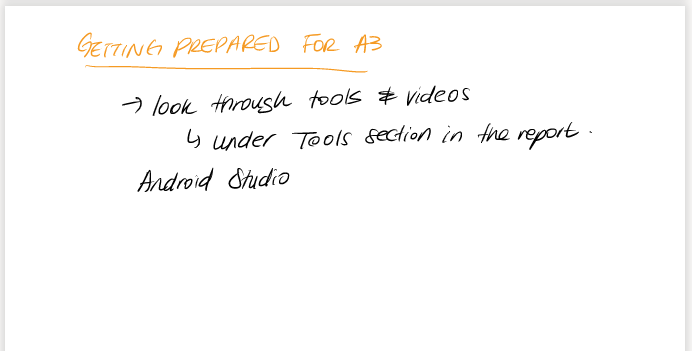 GETTING PREPARED FOR A3
→ look through tools & videos
↳ under Tools section in the report.
Android Studio